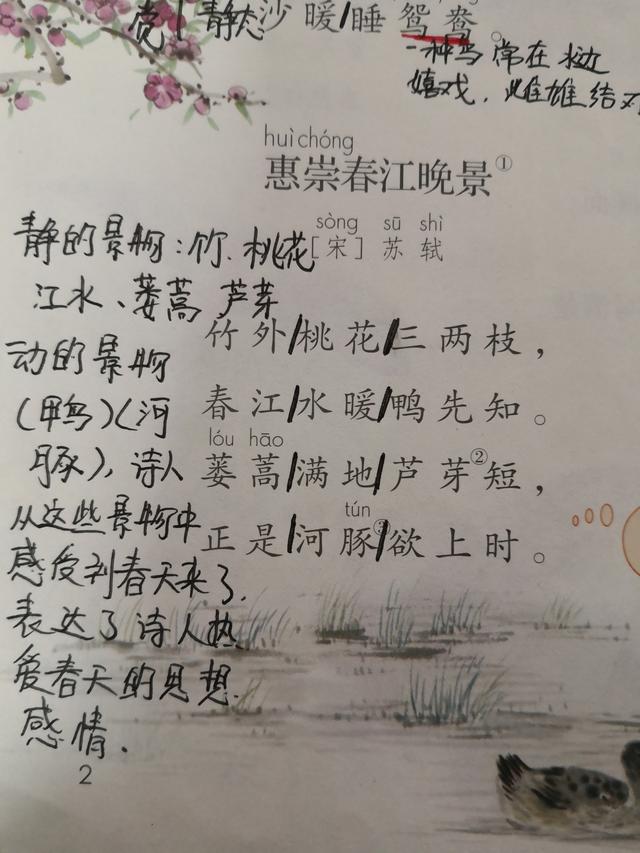 觉 静态 沙暖/睡鸳鸯。
一种鸟常在水边
嬉戏，雌雄结对
huì chóng
惠崇春江晚景①
sòng sū shì
[宋] 苏 轼
静的景物：竹、桃花
江水、蒌蒿 芦芽
动的景物
(鸭)(河
豚)，诗人
从这些景物中
感受到春天来了，
表达了诗人热
爱春天的思想
感情．
竹外/桃花/三两枝，
春江/水暖/鸭先知。
lóu hāo
蒌蒿/满地/芦芽②短，
tún
正是/河豚③/欲上时。
2